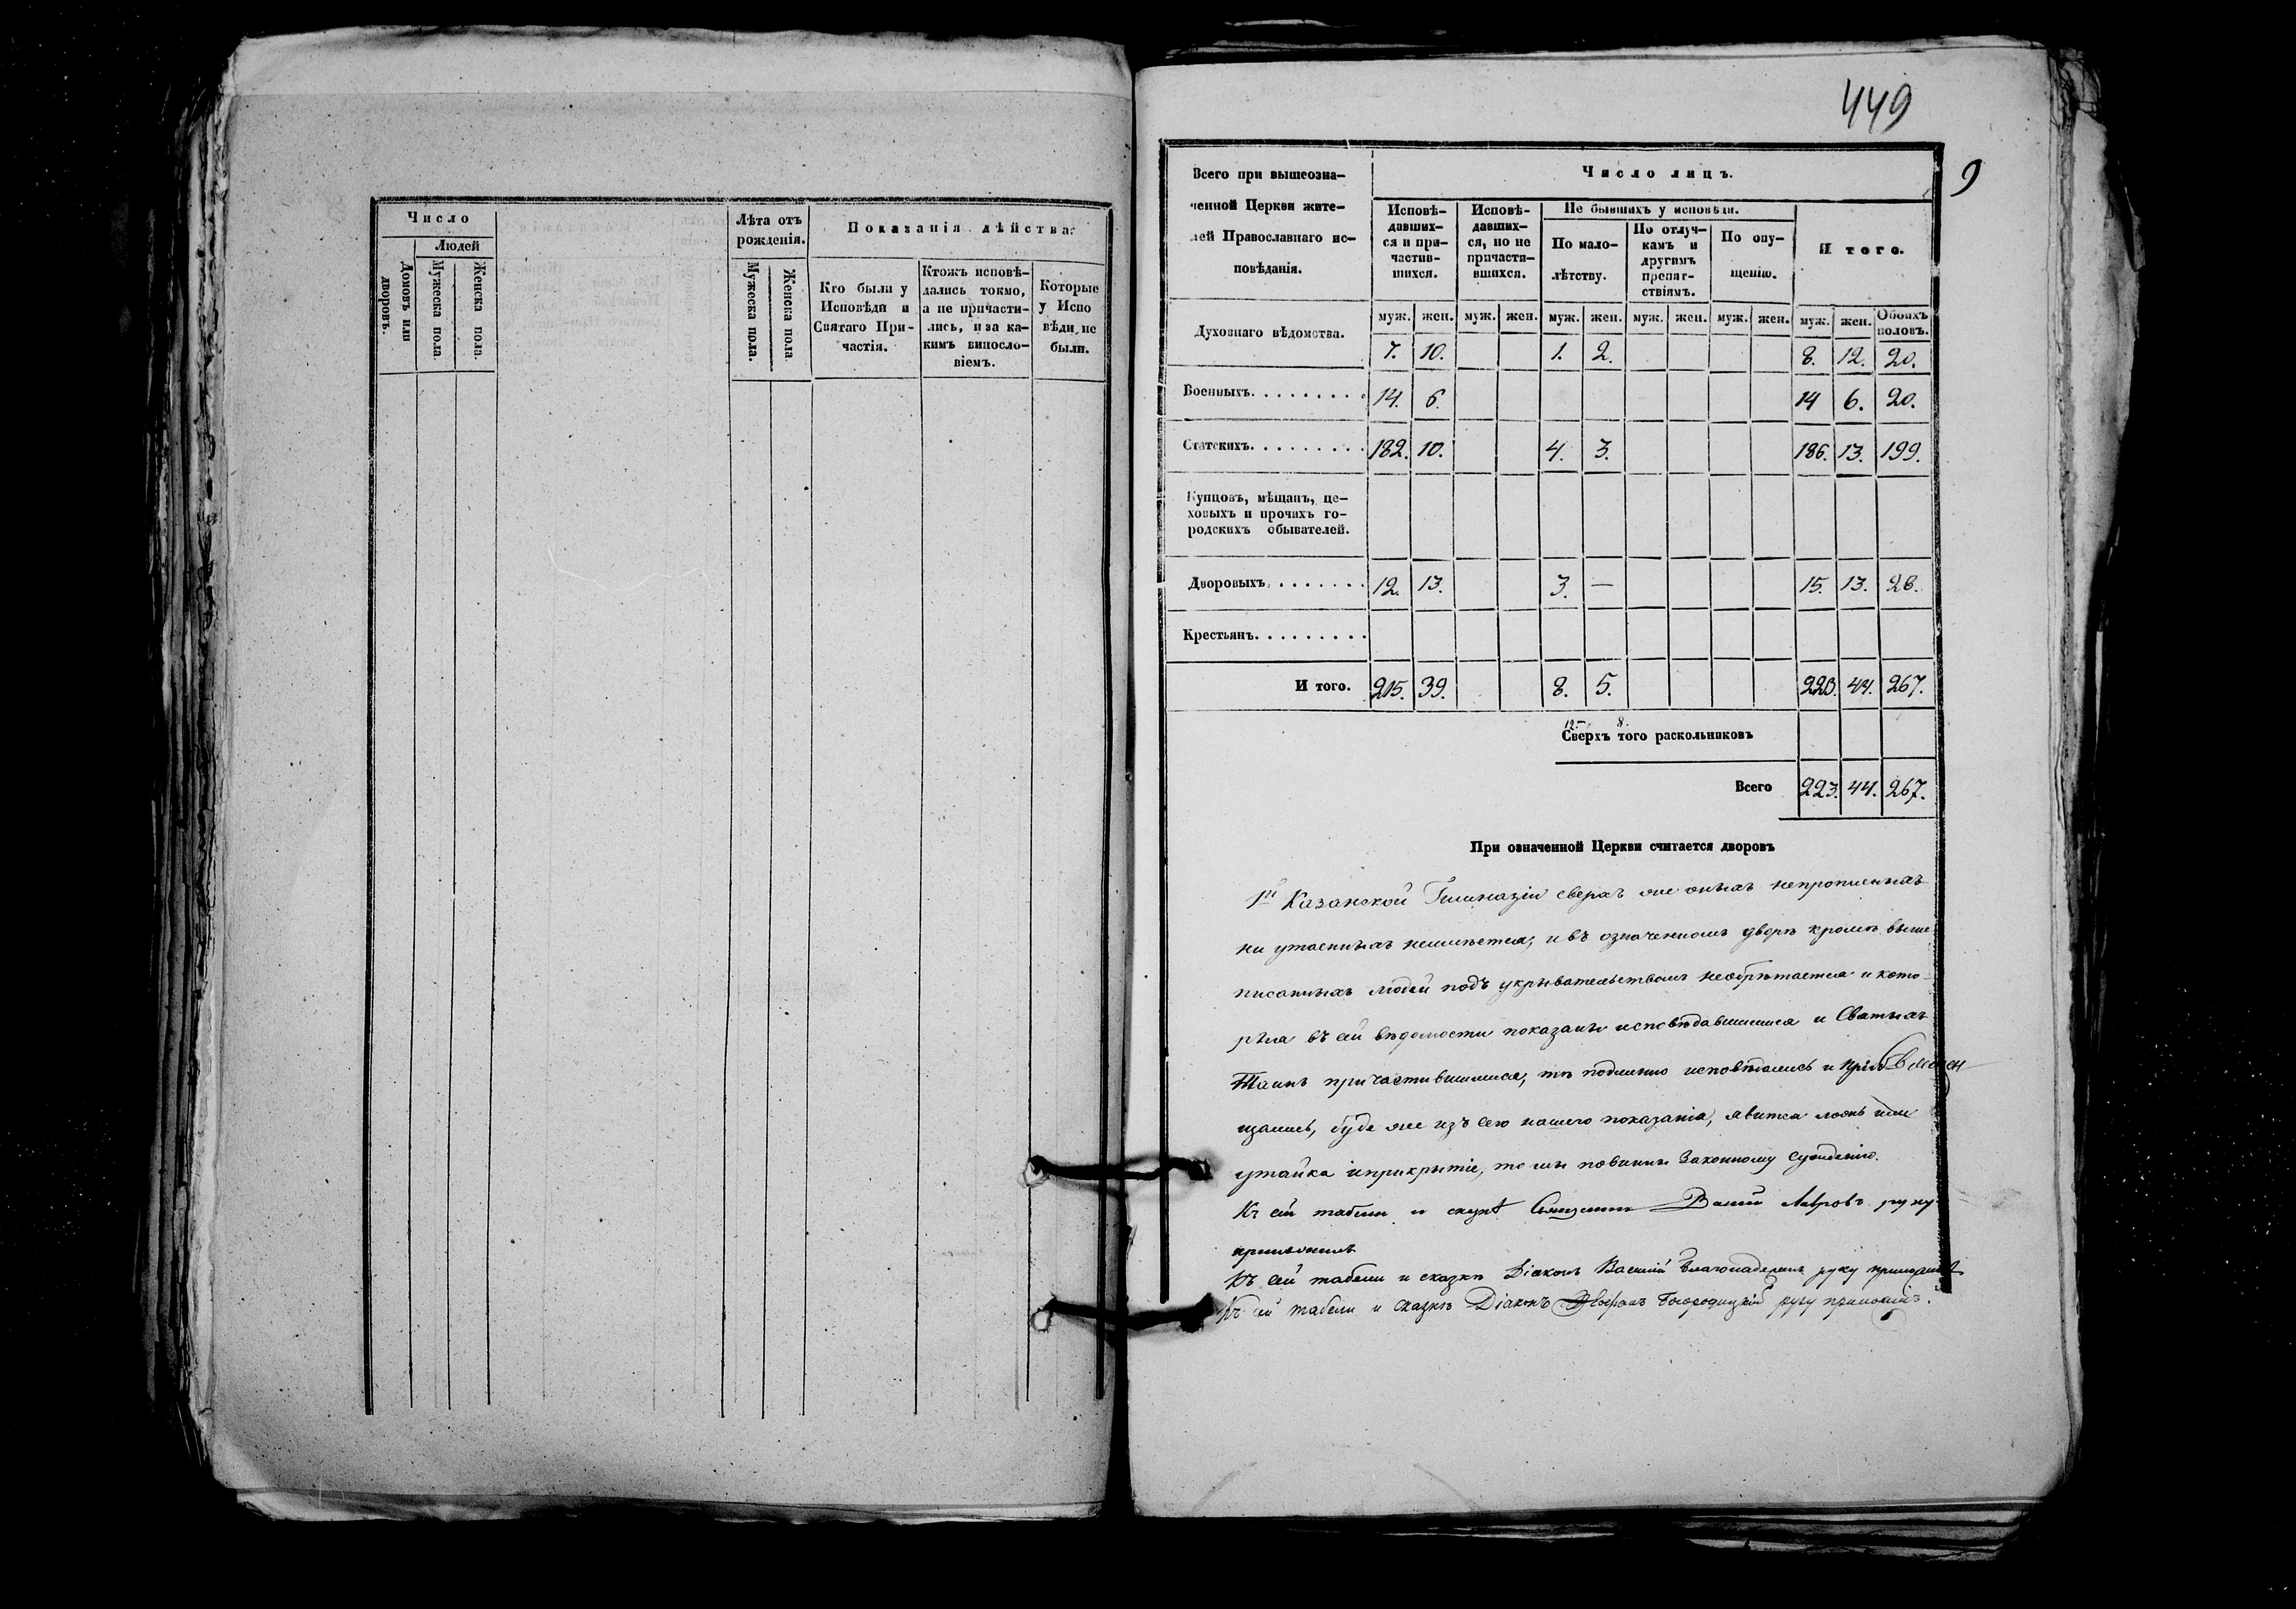 Число
Людей
Домовъ или дворовъ.
Мужеска пола.
Женска пола.
Лѣта отъ рожденія.
Мужеска пола.
Женска пола
Показанія дѣйства:
Кто были у
Исповѣди и
Святаго При-
частія.
Ктожъ исповѣ-
дались токмо,
а не причасти-
лись, и за ка-
кимъ винosло-
віемъ.
Которые
у Испо
вѣди, не
были.
449
9
Всего при вышеозна-
ченной Церкви жите-
лей Православнаго ис-
повѣданія.
Число лицъ.
Исповѣ-
давших-
ся и при-
частив-
шихся.
Исповѣ-
давших-
ся, но не
причастя-
вшихся.
Не бывшихъ у исповѣди.
По мало-
лѣтству.
По отлуч-
камъ и
другимъ
препят-
ствіямъ.
По опу-
щенію.
И того.
муж. жен. муж. жен. муж. жен. муж. жен. муж. жен. муж. жен. Обоихъ половъ.
Духовнаго вѣдомства. 7. 10. 1. 2. 8. 12. 20.
Военныхъ......... 14. 6. 14 6. 20.
Статскихъ......... 182. 10. 4. 3. 186. 13. 199.
Купцовъ, мѣщанъ, це-
ховыхъ и прочихъ го-
родскихъ обывателей.
Дворовыхъ........ 12. 13. 3. — 15. 13. 28.
Крестьянъ.........
И того. 215. 39. 8. 5. 223. 44. 267.
12. 8.
Сверхъ того раскольниковъ
Всего 223. 44. 267.
При означенной Церкви считается дворовъ
1й Казанской Гимназіи сверхъ же оныхъ непрописныхъ
ни утаенныхъ неимѣется, и въ означенномъ дворѣ кромѣ выше
писанныхъ людей подъ укрывательствомъ необрѣтается и кото-
рыя въ сей вѣдомости показаны исповѣдавшимися и Святыхъ
Таинъ причастившимися, тѣ подлинно исповѣдались и
щались, буде же изъ сего нашего показанія, явится ложь или
утайка и прикрытіе, то мы повинны законному сужденію.
Къ сей табели и Священникъ Васий Лавровъ руку
приложилъ
Къ сей табели и сказкѣ Діаконъ Василій руку приложилъ
Къ сей табели и сказкѣ Діаконъ Богородицкій руку приложилъ.